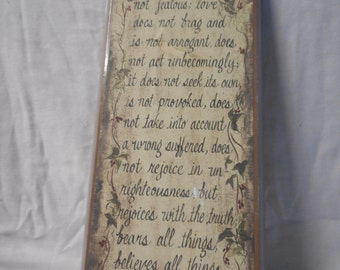 not jealous; love
does not brag and
is not arrogant, does
not act unbecomingly;
it does not seek its own,
is not provoked, does
not take into account
a wrong suffered, does
not rejoice in un
righteousness, but
rejoices with the truth
bears all things,
believes all things